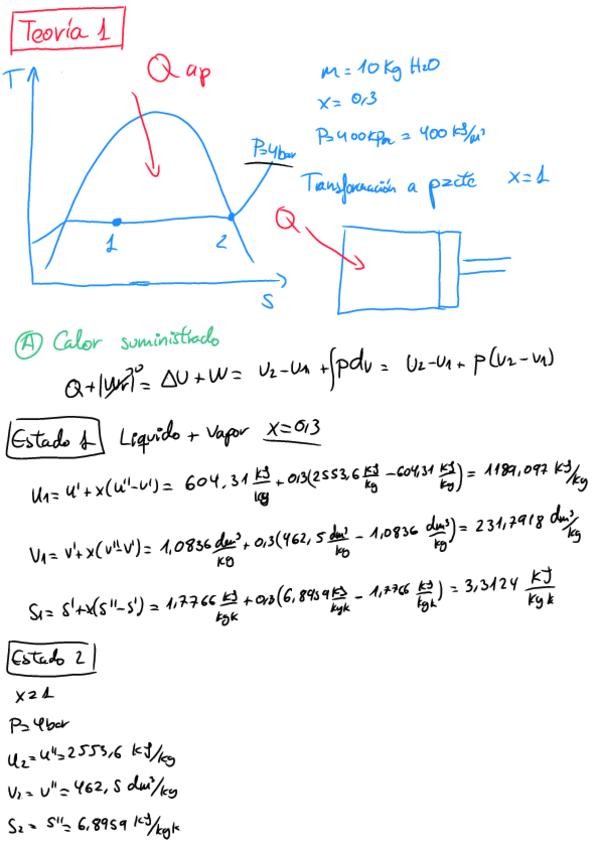 Teoría 1
T
Q ap
m = 10 Kg H2O
x = 0,3
P=400KPa = 400 KJ/m³
P=4bar
Transformación a p=cte x=1
1
2
S
Q
A Calor suministrado
Q+|Wr|⁰= ΔU + W = U2-U1 +∫pdv = U2-U1 + p(V2-V1)
Estado 1 Líquido + Vapor x=0,3
U1= u'+x(u''-u')= 604,31 KJ/kg + 0,3(2553,6 KJ/kg - 604,31 KJ/kg) = 1189,097 KJ/kg
V1= v'+x(v''-v')= 1,0836 dm³/kg + 0,3(462,5 dm³/kg - 1,0836 dm³/kg) = 231,7918 dm³/kg
S1= s'+x(s''-s')= 1,7766 KJ/kgK + 0,3(6,8959 KJ/kgK - 1,7766 KJ/kgK) = 3,3124 KJ/kgK
Estado 2
x=1
P=4bar
U2=u''=2553,6 KJ/kg
V2= v''= 462,5 dm³/kg
S2= s''= 6,8959 KJ/kgK